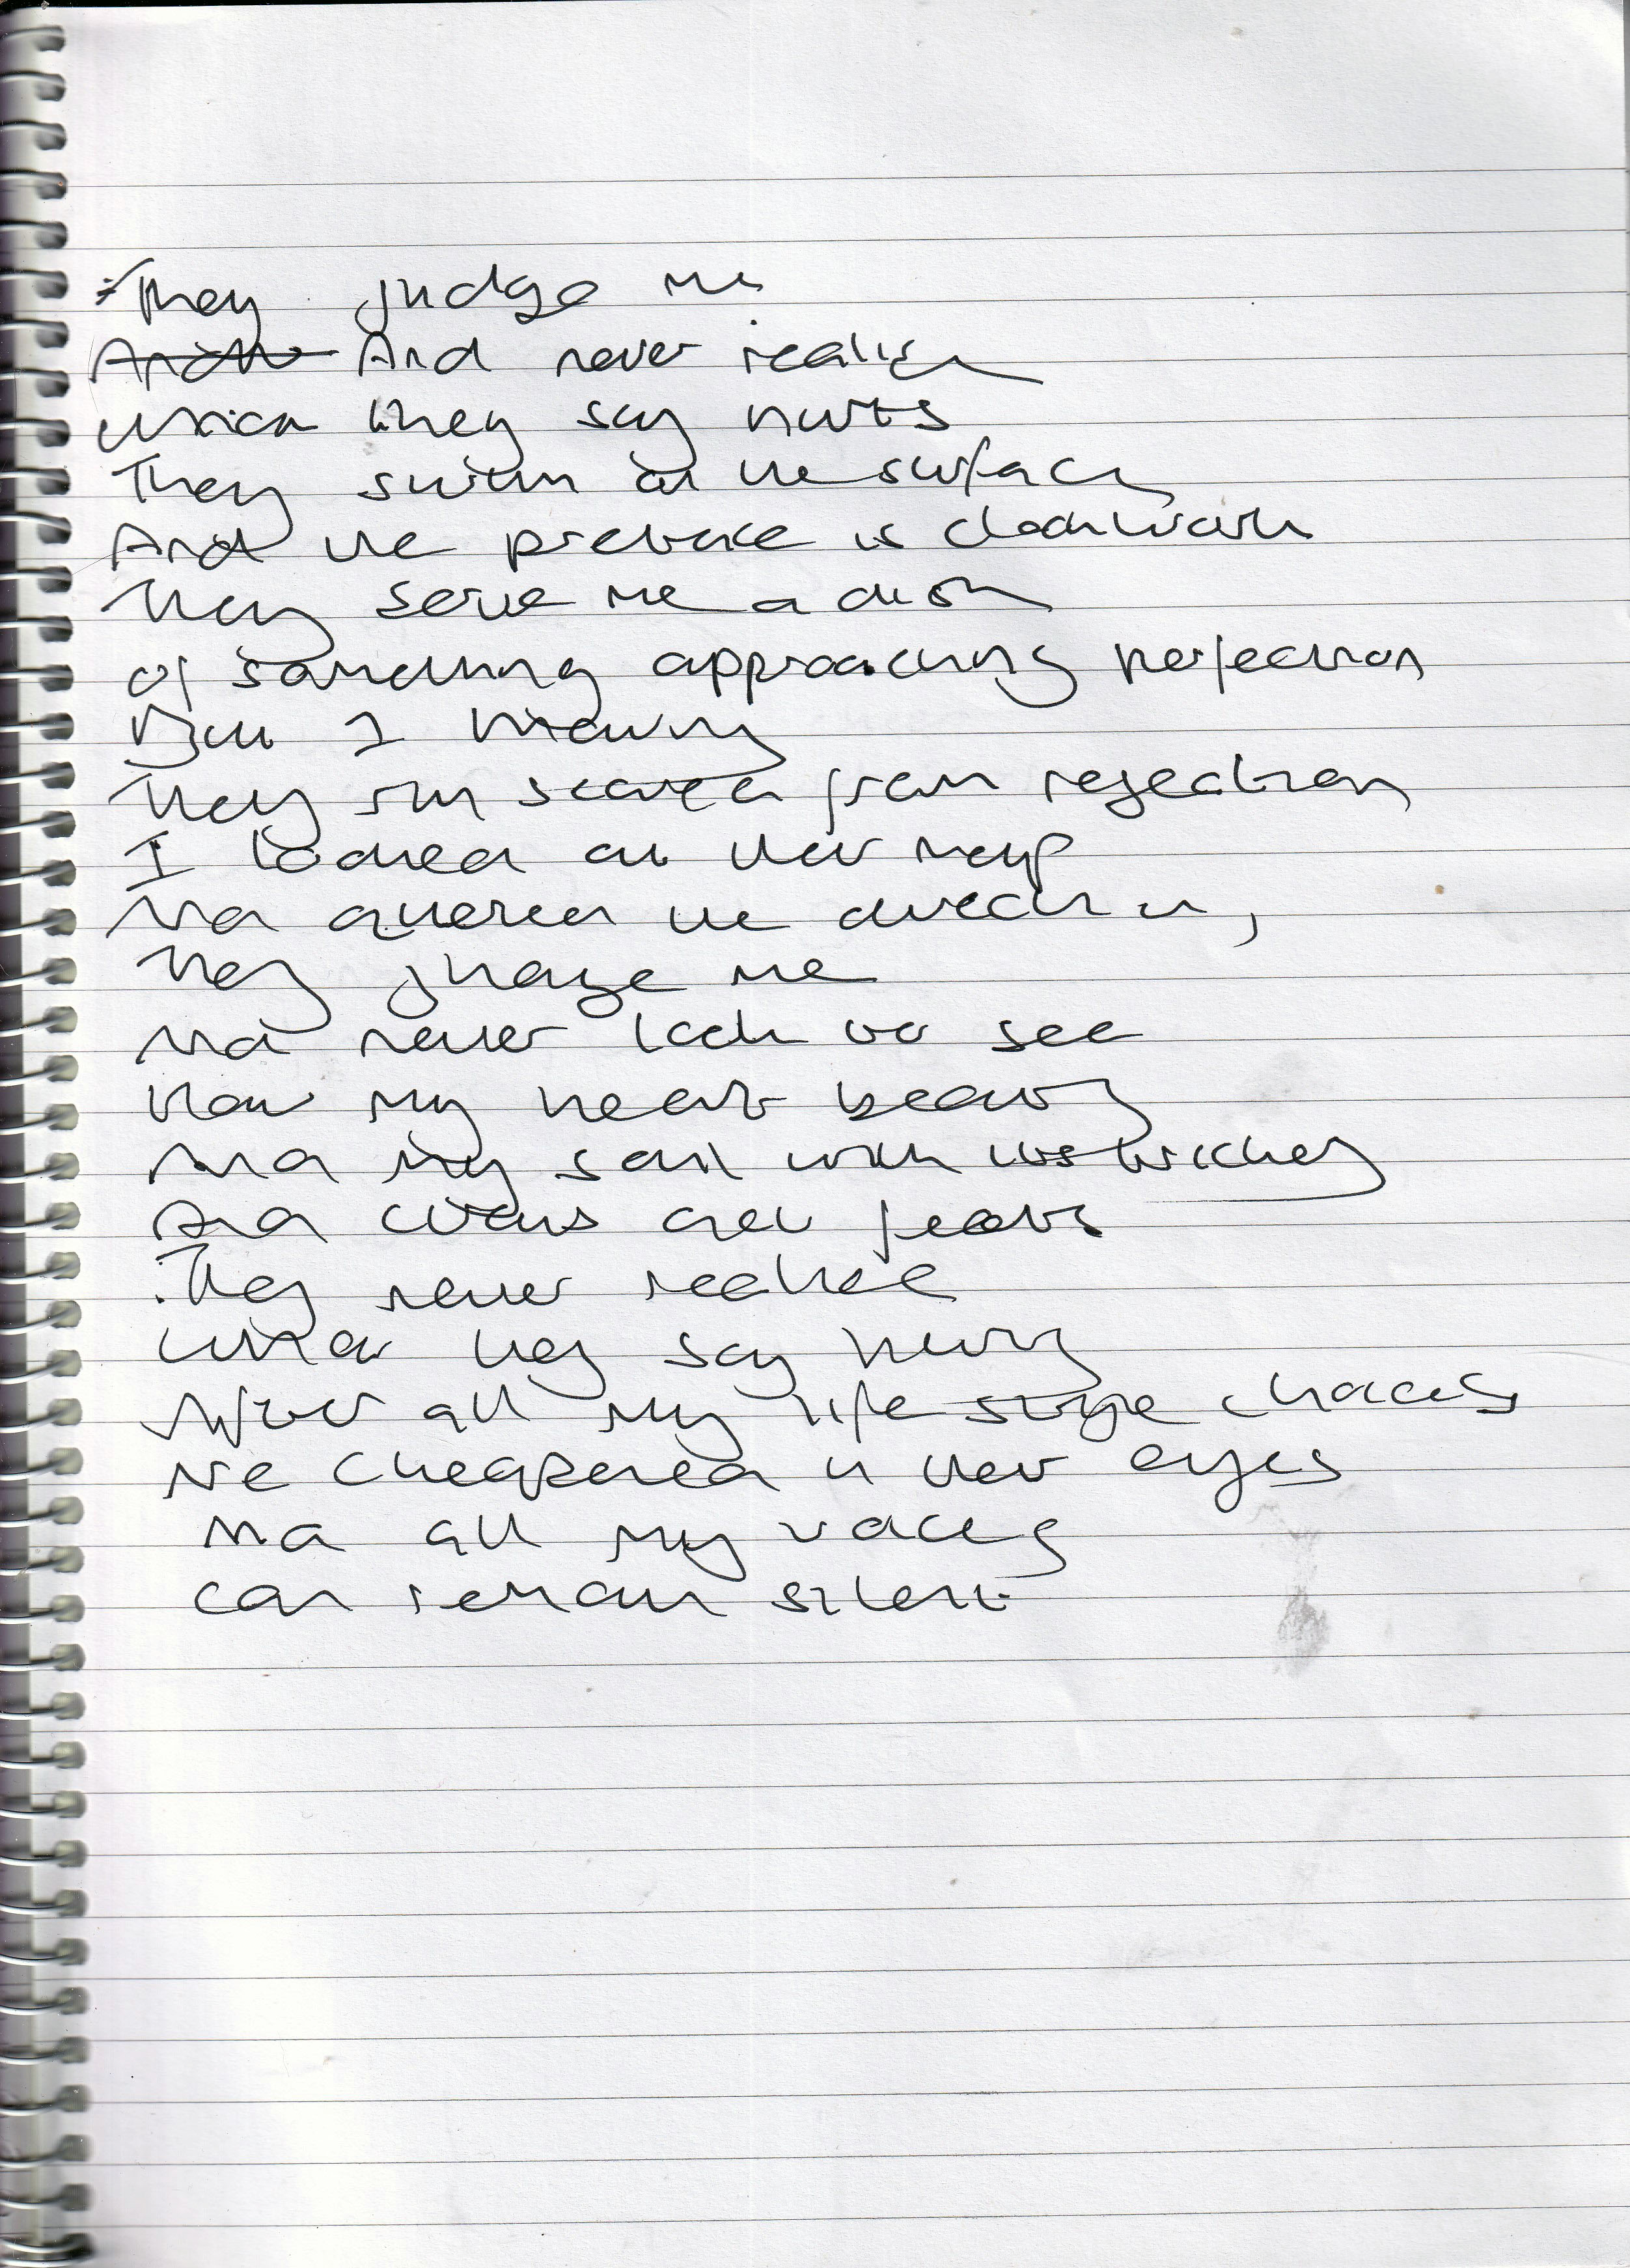 They judge me
And never realise
which they say hurts
They swim on the surface
And the pretence is clockwork
They serve me a dish
of something approaching perfection
But I know
They run scared from rejection
I looked at their map
And queried the direction,
They judge me
And never look to see
How my heart beats
And my soul with its
And cries and fears
They never realise
What they say hurts
After all my life style choices
Are cheapened in their eyes
And all my voices
can remain silent